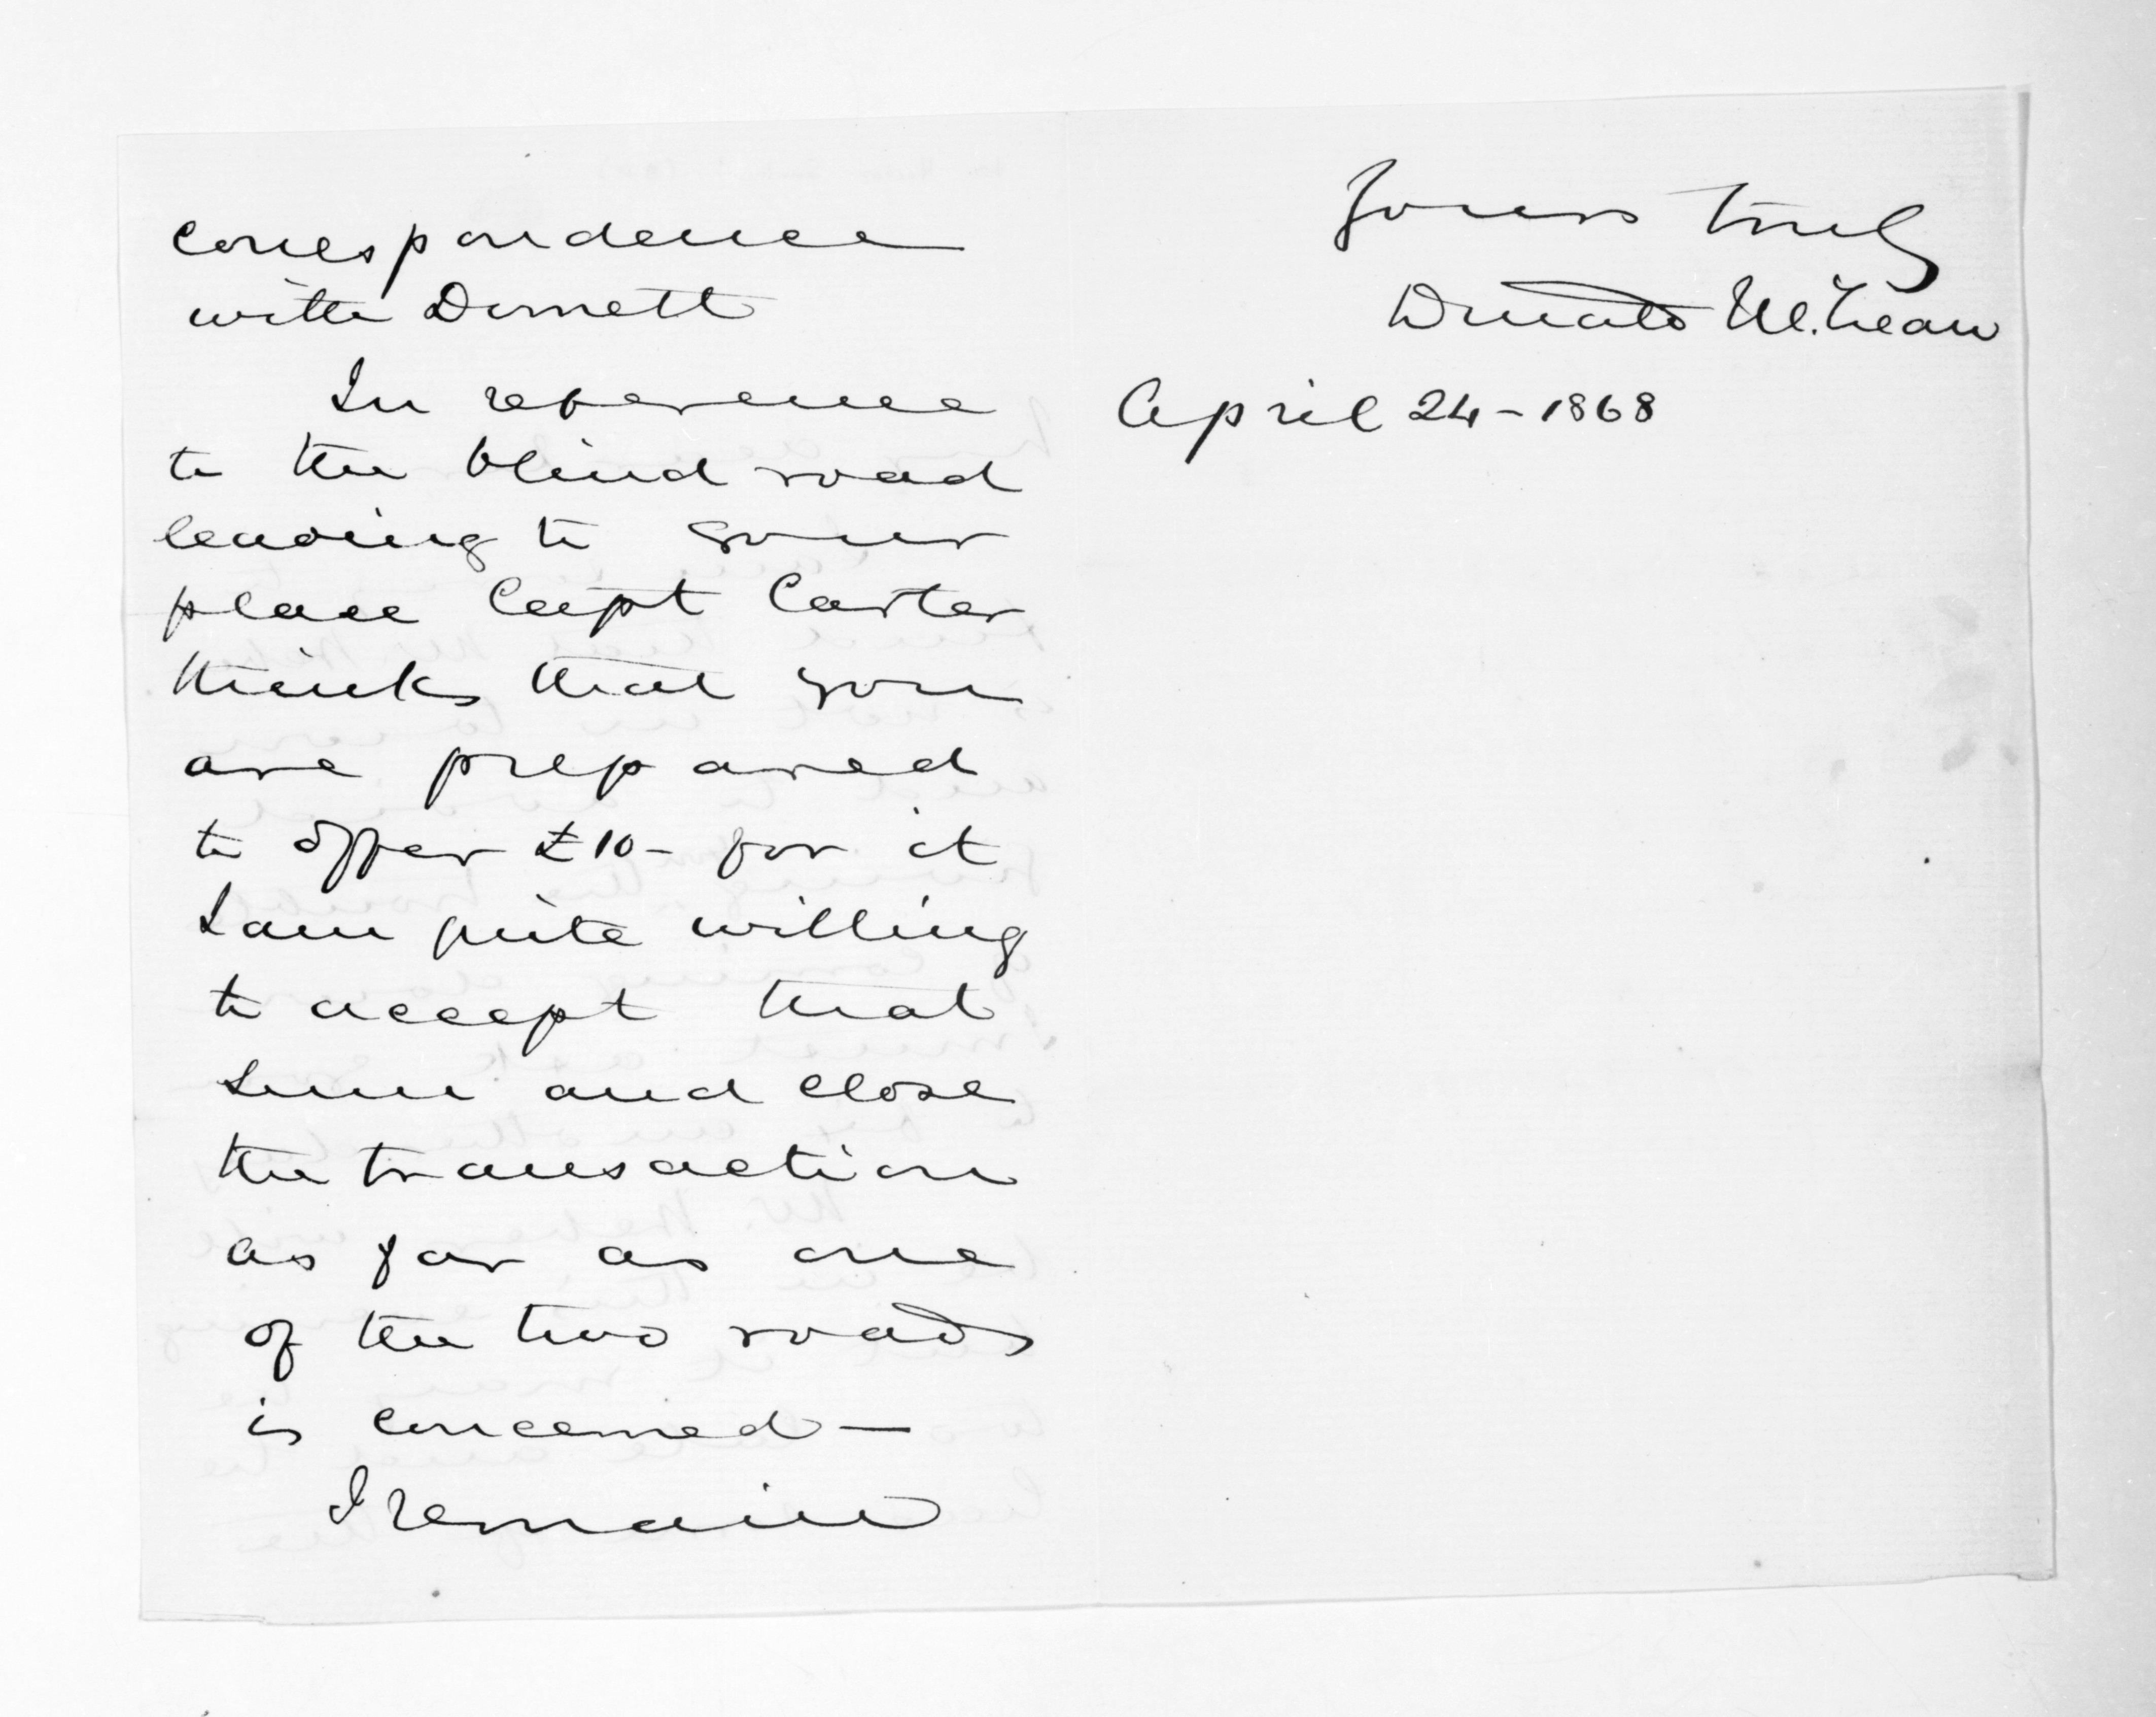 correspondence
with Domett
In reference
to the blind road
leading to your
place Capt Carter
thinks that you
are prepared
to offer £10- for it
I am quite willing
to accept that
sum and close
the transaction
as far as one
of the two roads
is concerned —
I remain
Yours truly
Donald McLean
April 24 - 1868